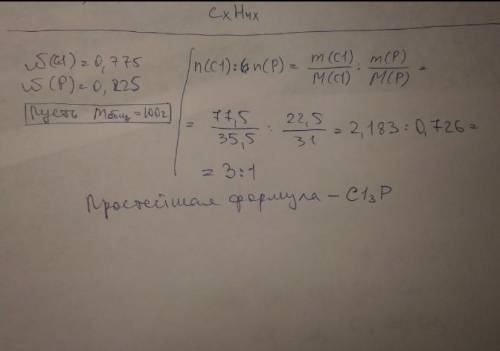 CxH4x
ω(Cl) = 0,775
ω(P) = 0,225
Пусть mобщ = 100г
n(Cl) : n(P) = m(Cl)/M(Cl) : m(P)/M(P) =
= 77,5/35,5 : 22,5/31 = 2,183 : 0,726 =
= 3:1
Простейшая формула – Cl₃P